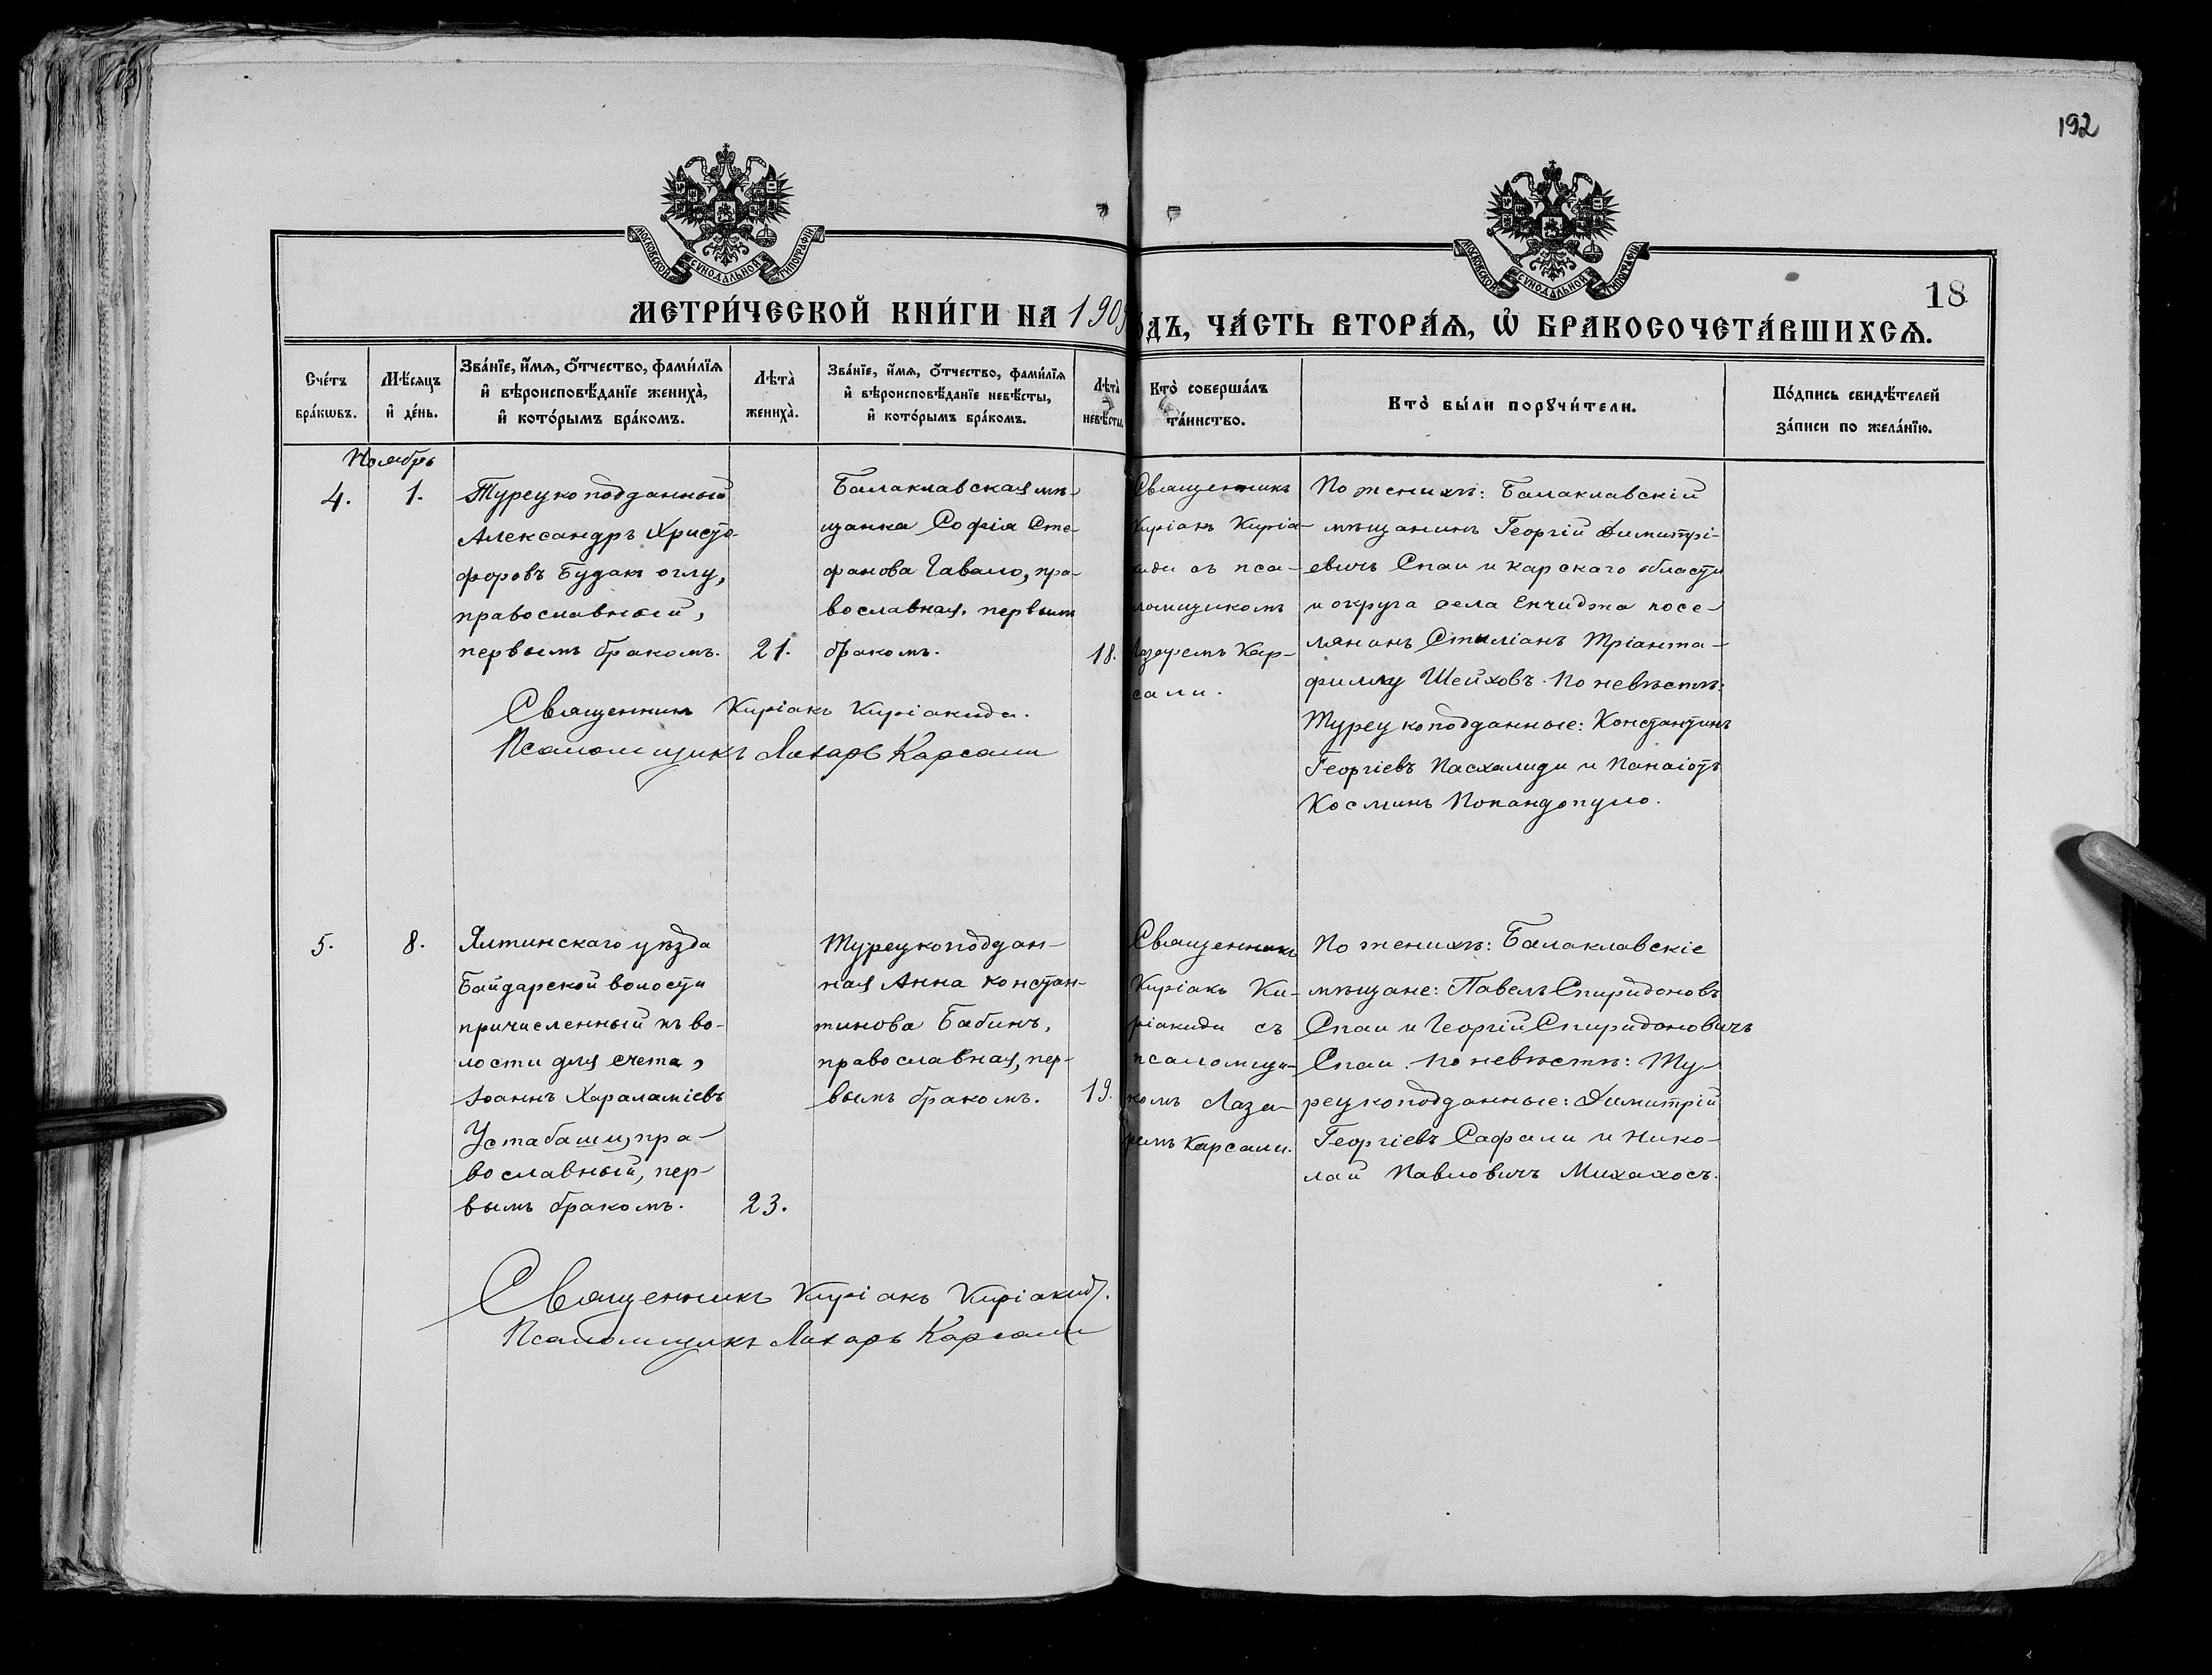 192
МОСКОВСКОЙ СѴНОДАЛЬНОЙ ТИПОГРАФІИ
МОСКОВСКОЙ СѴНОДАЛЬНОЙ ТИПОГРАФІИ
18
МЕТРИ́ЧЕСКОЙ КНИ́ГИ НА 190
ДЪ, ЧА́СТЬ ВТОРА́Ѧ, Ѡ҆ БРАКОСОЧЕТА́ВШИХСѦ.
Сче́тъ
бра́кѡвъ.
Мѣ́сяцъ
и҆ де́нь.
Зва́нїе, и҆́мѧ, о҆́тчество, фами́лїѧ
и҆ вѣроисповѣ́данїе жениха̀,
и҆ кото́рымъ бра́комъ.
Лѣта̀
жениха̀.
Зва́нїе, и҆́мѧ, о҆́тчество, фами́лїѧ
и҆ вѣроисповѣ́данїе невѣ́сты,
и҆ кото́рымъ бра́комъ.
Лѣта̀
невѣ́сты.
Кто̀ соверша́лъ
та́инство.
Кто̀ бы́ли порꙋчи́тели.
По́дпись свидѣ́телей
за́писи по жела́нїю.
Ноябрь
4.
1.
Турецко подданный
Александръ Христо-
форовъ Будакъ оглу,
православный,
первымъ бракомъ.
21.
Балаклавская мѣ-
щанка Софія Сте-
фанова Гавало, пра-
вославная, первым
бракомъ.
18.
Священникъ
Киріакъ Киріа-
киди съ пса-
ломщикомъ
Лазаремъ Кар-
сали.
По женихѣ: Балаклавскій
мѣщанинъ Георгій Димитрі-
евичъ Спаи и Карскаго области
и округа села Енчиджа посе-
лянинъ Стиліанъ Тріанта-
филлу Шейховъ. По невѣстѣ:
Турецкоподданные: Константинъ
Георгіевъ Пасхалиди и Панаіотъ
Косминъ Попандопуло.
Священникъ Киріакъ Киріакиди.
Псаломщикъ Лазарь Карсали
5.
8.
Ялтинскаго уѣзда
Байдарской волости
причисленный къ во-
лости для счета,
Іоаннъ Хараламіевъ
Устабаши, пра-
вославный, пер-
вымъ бракомъ.
23.
Турецкоподдан-
ная Анна Констан-
тинова Бабинъ,
православная, пер-
вымъ бракомъ.
19.
Священникъ
Киріакъ Ки-
ріакиди съ
псаломщи-
комъ Лаза-
ремъ Карсали.
По женихѣ: Балаклавскіе
мѣщане: Павелъ Спиридоновъ
Спаи и Георгій Спиридоновичъ
Спаи. По невѣстѣ: Ту-
рецкоподданные: Димитрій
Георгіевъ Сафали и Нико-
лай Павловичъ Михахосъ.
Священникъ Киріакъ Киріакиди.
Псаломщикъ Лазарь Карсали